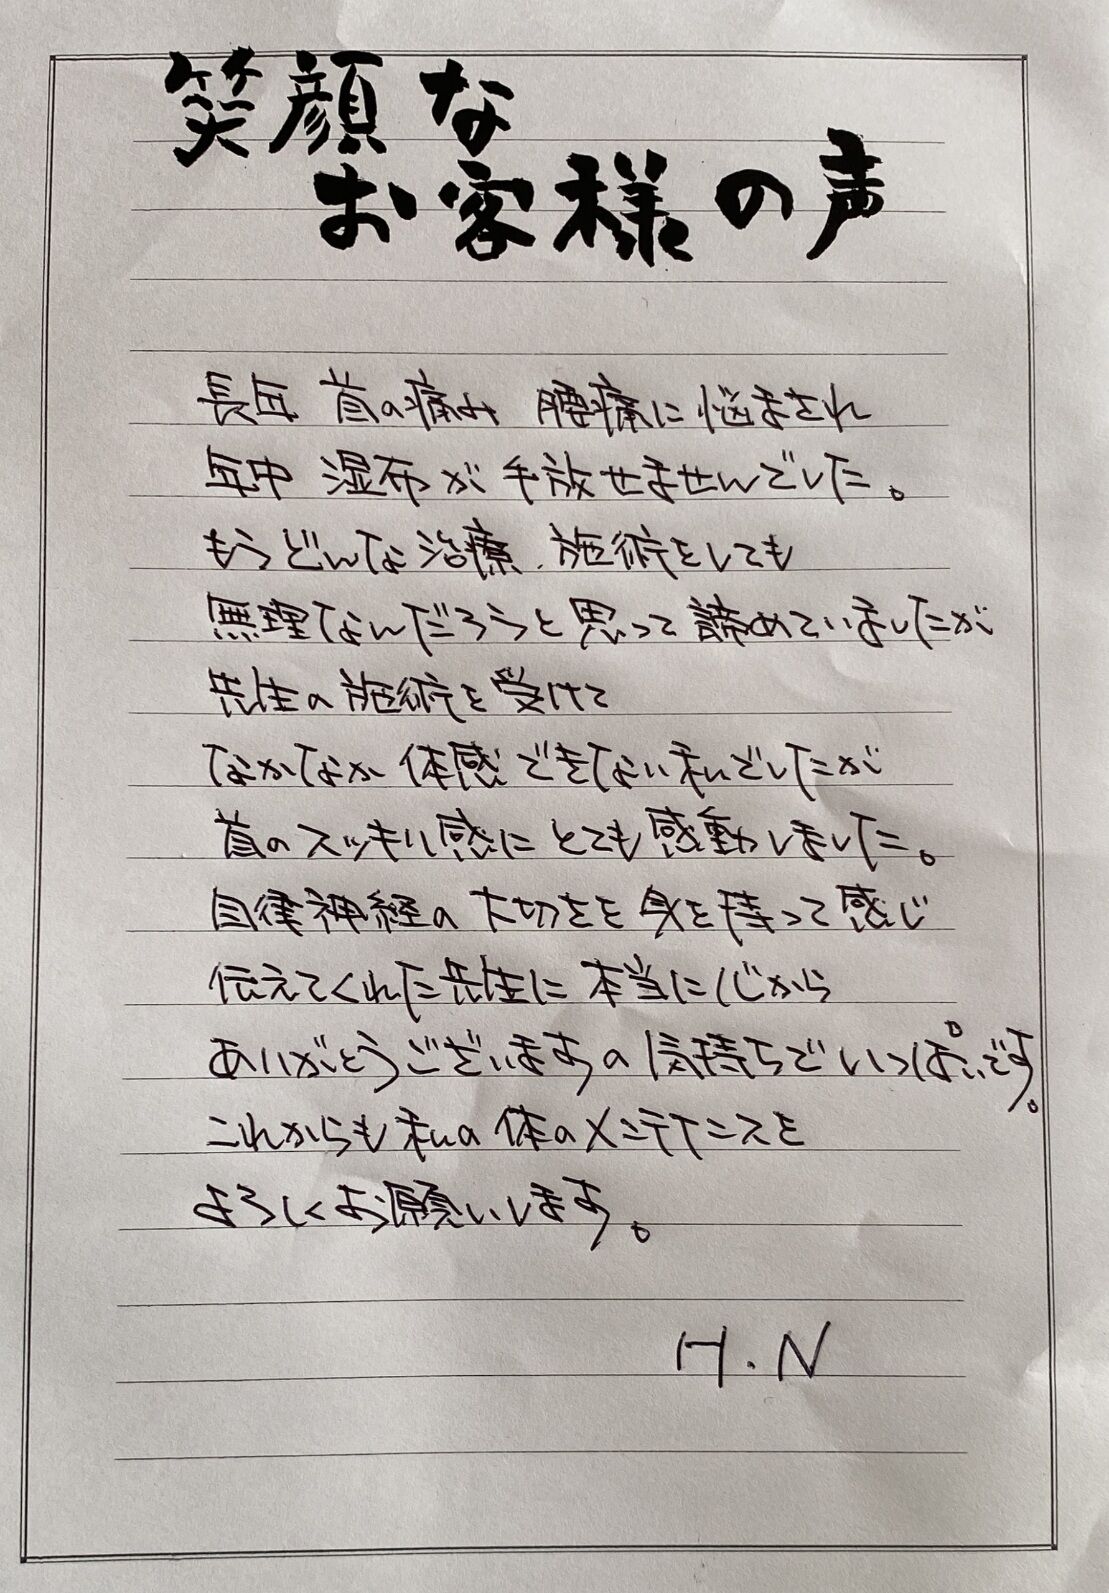 笑顔な
お客様の声
長年 首の痛み 腰痛に悩まされ
年中 湿布が手放せませんでした。
もうどんな治療、施術をしても
無理なんだろうと思って諦めていましたが
先生の施術を受けて
なかなか体感できない私でしたが
首のスッキリ感にとても感動しました。
自律神経の大切さを身を持って感じ
伝えてくれた先生に本当に心から
ありがとうございますの気持ちでいっぱいです。
これからも私の体のメンテナンスを
よろしくお願いします。
H.N